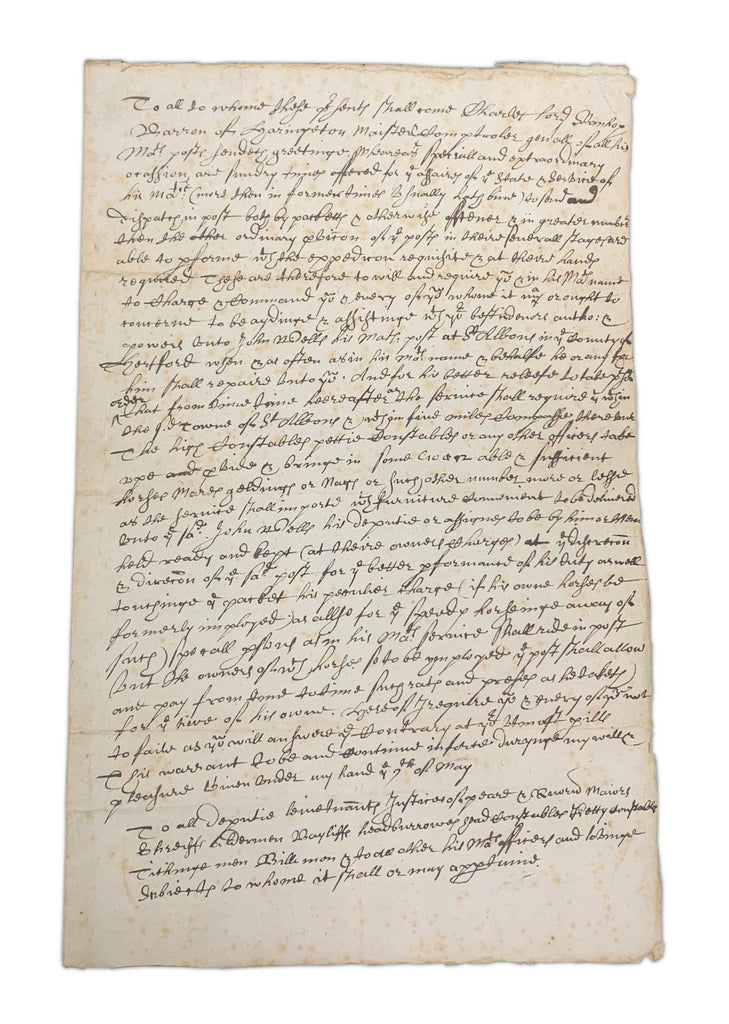 To all to whome these p'sents shall come Charles lord Stanhop
Barron of Haringeton Maister Comptroler gen'all of all his
Ma:ts posts sendeth greetinge. Whereas speciall and extraordinary
occassions are sundry times offered for ye affaires of ye State & Service of
his Ma:tie (more then in former times usually hath bine) to send and
dispatch in post both by packetts & otherwise oftener & in greater number
then the other ordinary p'vic'on of ye posts in theire severall stages are
able to p'forme wth the expedic'on requisite & at theire hands
required These are therefore to will and require yo & in his Ma:ts name
to Charge & Command yo & every of yo whome it may or ought to
concerne to be aydinge & assistinge wth yr best indevers autho: &
powers unto John Wells his Ma:ts post at St Albons in ye County of
Hertford when & as often as in his Ma:ts name & behalfe he or any for
him shall repaire unto yo. And for his better releefe to take p'sent
order
That from time to time heereafter as the service shall require yo wthin
the sd Towne of St Albons & wthin five miles Compasse thereunto
The high Constables pettie Constables or any other officers take
upp and p'vide & bringe in some able & sufficient
horses Mares geldings or Nags or such other number more or lesse
as the service shall importe wth furniture convenient to be delivered
unto ye sd John Wells his deputie or assignes to be by him or them
held ready and kept (at theire owners Charges) at ye discrec'on
& direcc'on of ye sd post for ye better p'formance of his duty aswell
touchinge ye packet his peculier charge (if his owne horses bee
formerly imployed) as allso for ye speedy horseinge away of
such speciall p'sons as in his Ma:ts service shall ride in post
(but the owners of wch horses so to be ymployed ye post shall allow
and pay from time to time such rates and prises as he taketh)
for ye hire of his owne. Hereof I require yo & every of yo not
to faile as yo will answere ye Contrary at yor utmost p'ills
This warrant to be and Continue in force duringe my will &
pleasure Given under my hand ye 7th of May
To all deputie leiuetenants Justices of peace & Quoru' Maiors
Shreiffs Aldermen Bayliffs headburrowes head Constables Petty Constables
Tithinge men Bill men & to all other his Ma:ts officers and lovinge
Subiects to whome it shall or may appertaine.